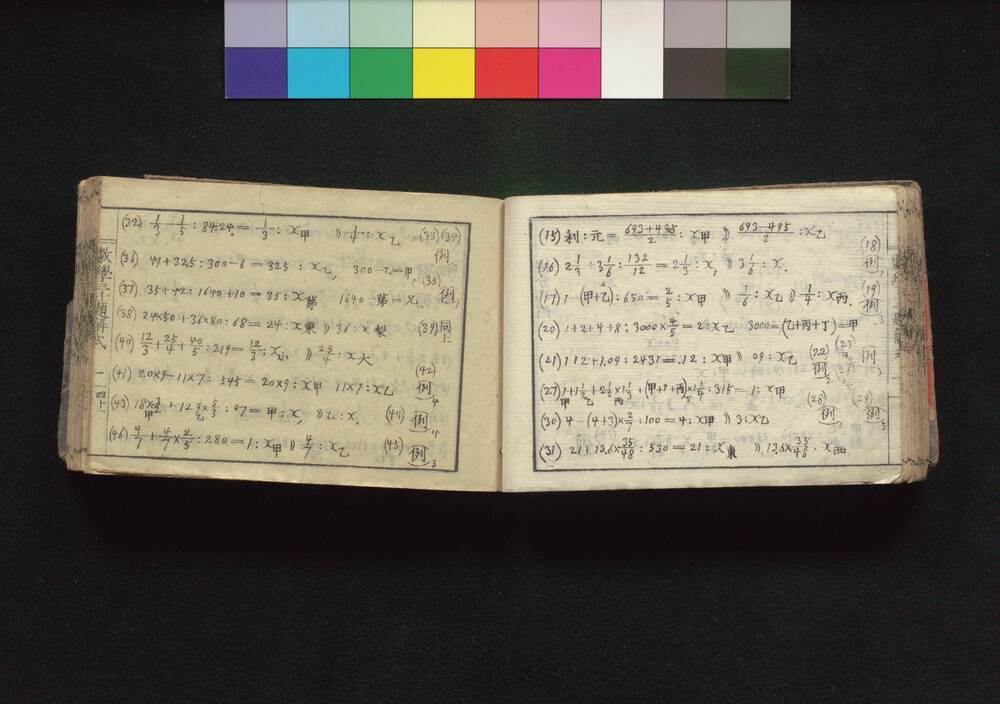 (15) 利:元=(693+495)/2:x甲 〃 (693-495)/2:x乙
(16) 2 1/3+3 1/6:132/12=2 1/3:x, 〃 3 1/6:x. (18)例,1
(17) 1-(甲+乙):650=2/5:x甲 〃 1/6:x乙 〃 1/4:x丙 (19)例,3
(20) 1+2+4+8:3000×4/5=2:x乙 3000=(乙+丙+丁)=甲
(21) 112+1.09:2431=.12:x甲 〃 09:x乙 (22)例,2 (23) 例,3
(27) 1+1 1/2+2 1/2×1 1/3+(甲+乙+丙)×1 1/4:315=1:x甲
甲 乙 丙 丁
(30) 4-(4+3)×2/7:100=4:x甲 〃 3:x乙 (28)例,3 (29)例,3
(31) 21+13.6×35/48:530=21:x東 〃 13.6×35/48:x西
(32) 1/3-1/5:84.24=1/3:x甲 〃 1/4:x乙 (33)(34)例,
(36) 49+325:300-6=325:x乙, 300-乙=甲 (35)例,1
(37) 35+42:1640+10=35:x弟 1640-弟=兄,
(38) 24×50+36×80:68=24:x東 〃 36:x梨 (39)同上
(40) 12/3+25/4+40/5:219=12/3:x小, 〃 25/4:x大
(41) 20×9-11×7:545=20×9:x甲 11×7:x乙 (42)例,4
(43) 18×3/2+12 9/2×5/3:97=甲:x, 〃 乙:x. (44)例,4
甲 乙
(46) 4/7+4/7×2/5:280=1:x甲 〃 4/7:x乙 (45)例,3
數學三千題解式
一 四十